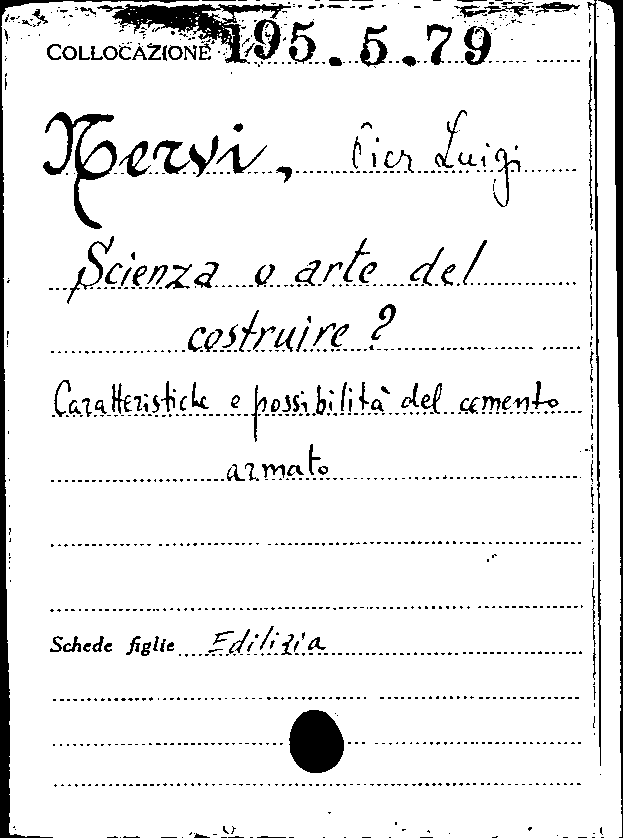 COLLOCAZIONE 195.5.79
Nervi, Pier Luigi
Scienza o arte del
costruire?
Caratteristiche e possibilità del cemento
armato
Schede figlie Edilizia